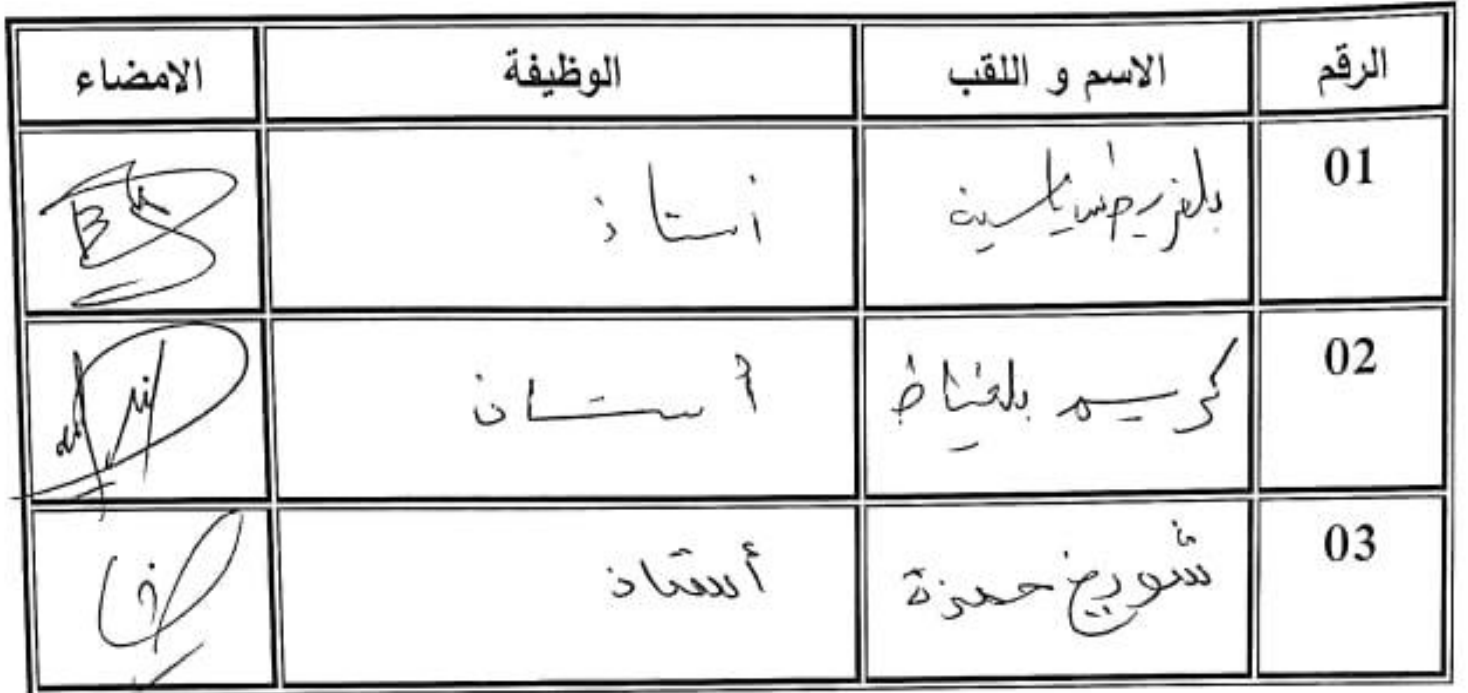 الرقم الاسم و اللقب الوظيفة الامضاء
01 ياسين أستاذ
02 كريم أستاذ
03 حمزة أستاذ